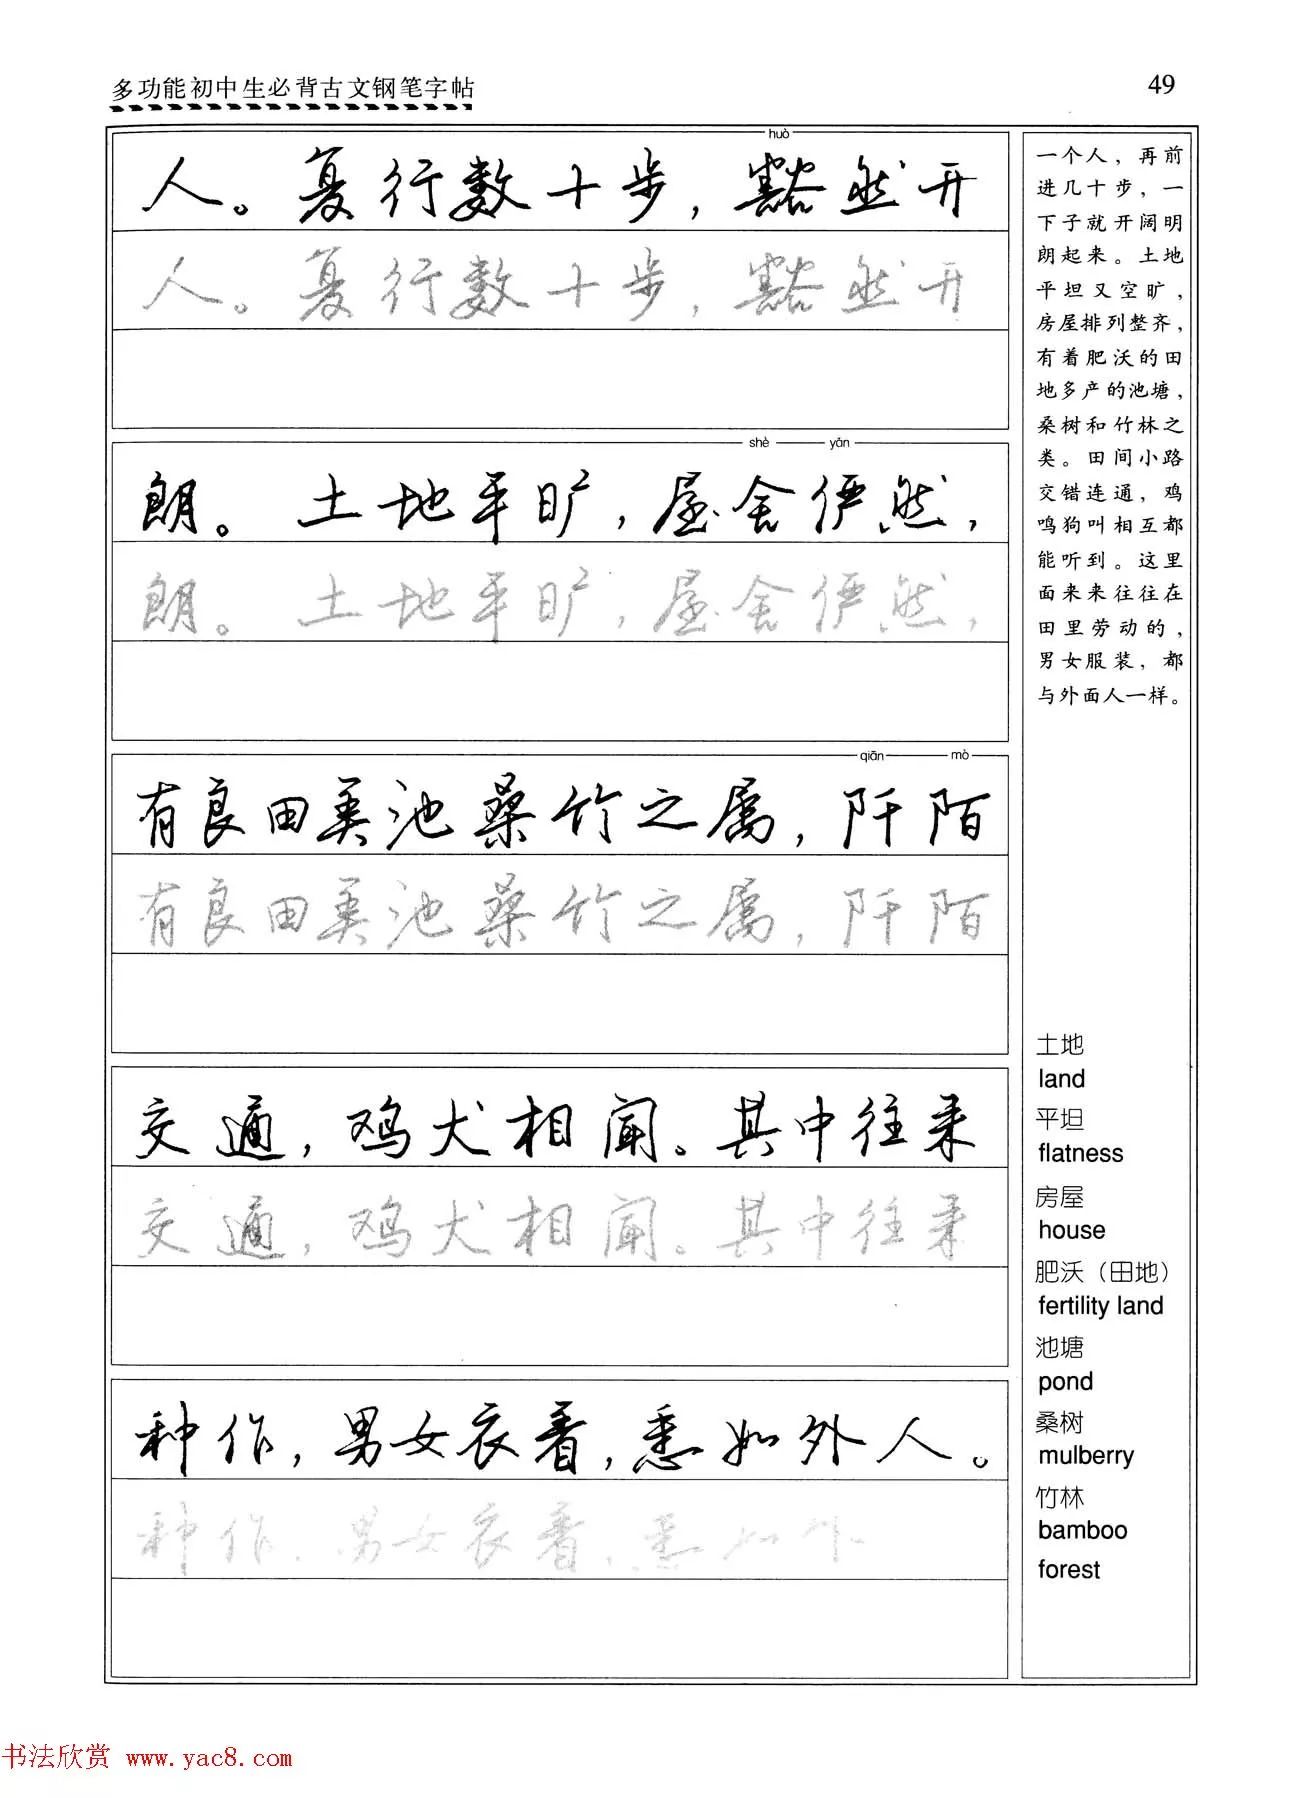 多功能初中生必背古文钢笔字帖
49
huò
人。复行数十步，豁然开
人。复行数十步，豁然开
shè yǎn
朗。土地平旷，屋舍俨然，
朗。土地平旷，屋舍俨然，
qiān mò
有良田美池桑竹之属，阡陌
有良田美池桑竹之属，阡陌
交通，鸡犬相闻。其中往来
交通，鸡犬相闻。其中往来
种作，男女衣着，悉如外人。
种作，男女衣着，悉如外
一个人，再前
进几十步，一
下子就开阔明
朗起来。土地
平坦又空旷，
房屋排列整齐，
有着肥沃的田
地多产的池塘，
桑树和竹林之
类。田间小路
交错连通，鸡
鸣狗叫相互都
能听到。这里
面来来往往在
田里劳动的，
男女服装，都
与外面人一样。
土地
land
平坦
flatness
房屋
house
肥沃（田地）
fertility land
池塘
pond
桑树
mulberry
竹林
bamboo
forest
书法欣赏 www.yac8.com